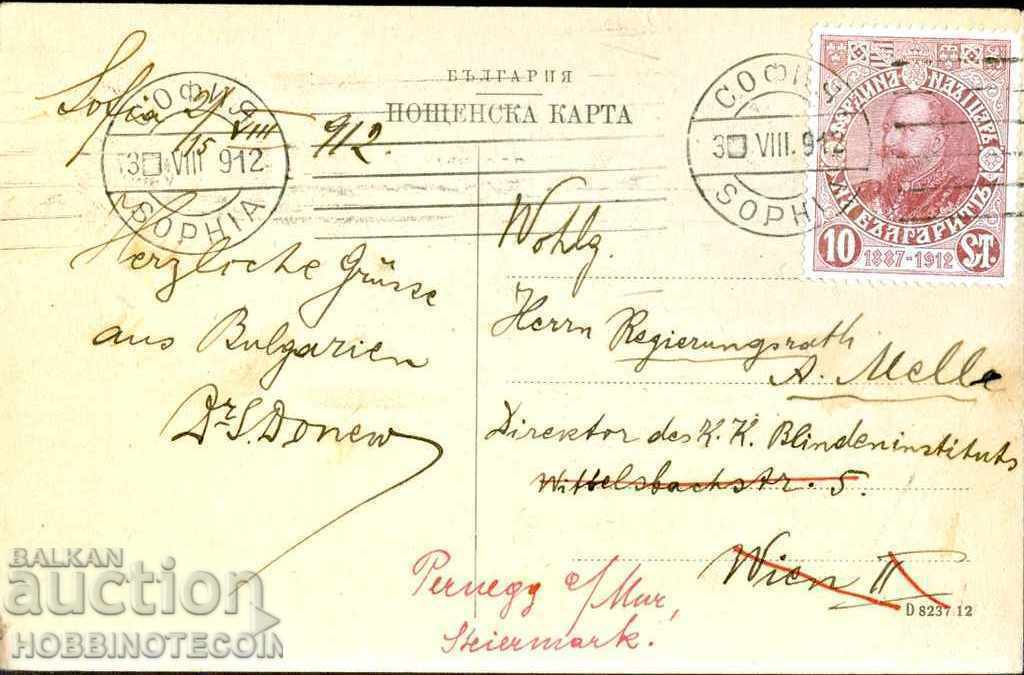 БЪЛГАРИЯ
ПОЩЕНСКА КАРТА
Sofia, 2/VIII
15
912.
СОФИЯ
3 VIII 912
SOPHIA
СОФИЯ
3 VIII. 912
SOPHIA
БЪЛГАРИТѢ
10 1887-1912 ST.
Herzliche Grüsse
aus Bulgarien
Dr. S. Donew
Wohlg.
Herrn Regierungsrath
A. Melle
Direktor des K. K. Blindeninstituts
Wittelsbachstr. 5.
Wien II
Pernegg a/Mur,
Steiermark!
D 8237 12
BALKAN
auction
HOBBINOTECOIN